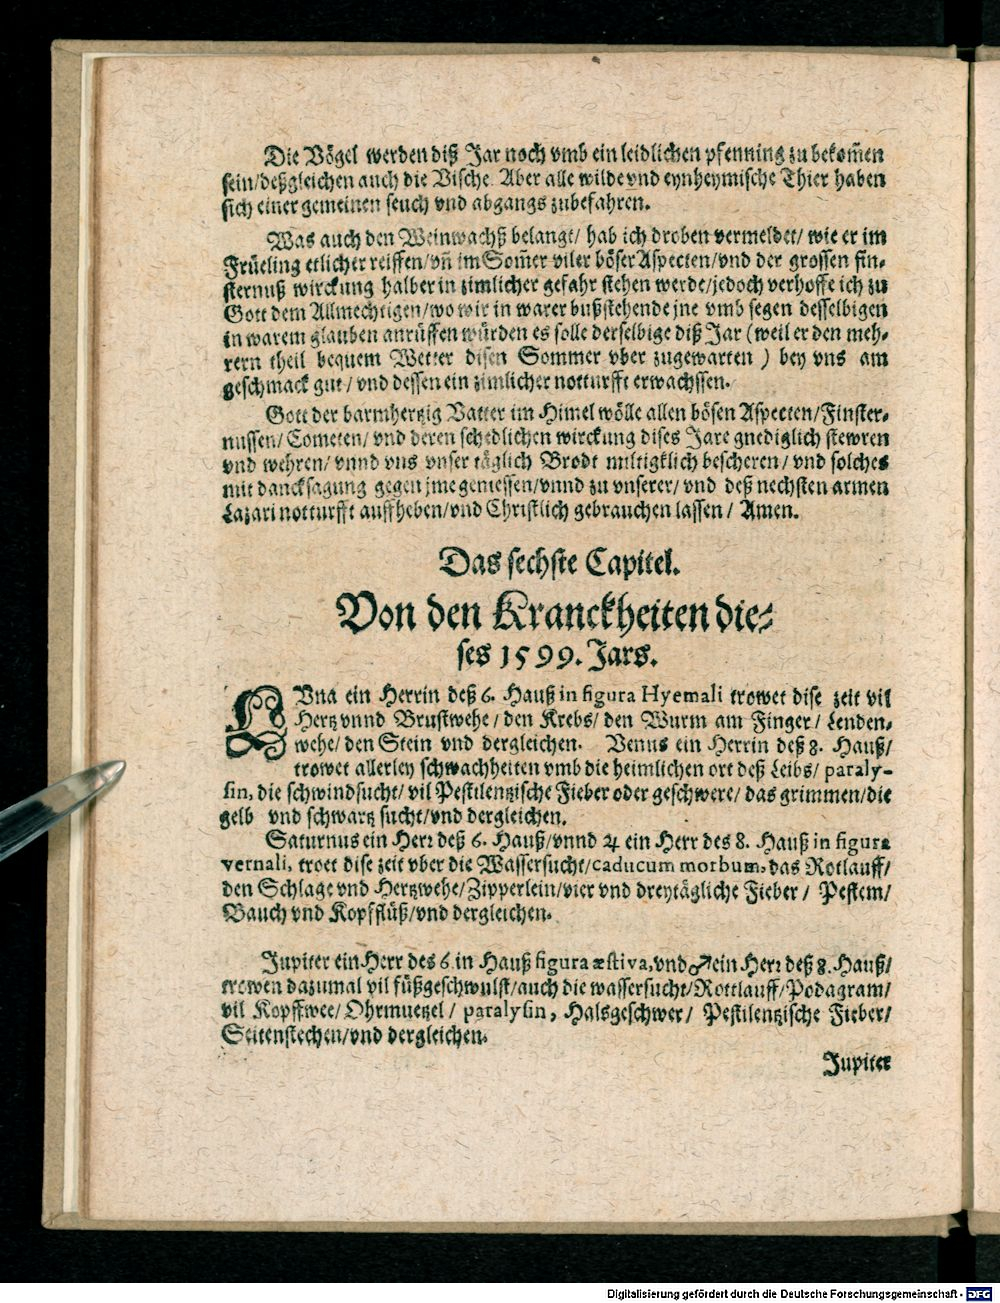 Die Vögel werden diß Jar noch vmb ein leidlichen pfenning zu bekom̃en
sein/deßgleichen auch die Vische. Aber alle wilde vnd eynheymische Thier haben
sich einer gemeinen seuch vnd abgangs zubefahren.
Was auch den Weinwachß belangt/ hab ich droben vermeldet/ wie er im
Früeling etlicher reiffen/vñ im Som̃er viler böser Aspecten/vnd der grossen fin-
sternuß wirckung halber in zimlicher gefahr stehen werde/jedoch verhoffe ich zu
Gott dem Allmechtigen/wo wir in warer bußstehende jne vmb segen desselbigen
in warem glauben anrüffen würden es solle derselbige diß Jar (weil er den meh-
rern theil bequem Wetter disen Sommer vber zugewarten) bey vns am
geschmack gut/ vnd dessen ein zimlicher notturfft erwachssen.
Gott der barmhertzig Vatter im Himel wölle allen bösen Aspecten/Finster-
nussen/Cometen/ vnd deren schedlichen wirckung dises Jare gnediglich stewren
vnd wehren/ vnnd vns vnser täglich Brodt miltigklich bescheren/ vnd solches
mit dancksagung gegen jme geniessen/vnnd zu vnserer/ vnd deß nechsten armen
Lazari notturfft auffheben/vnd Christlich gebrauchen lassen/ Amen.
Das sechste Capitel.
Von den Kranckheiten die-
ses 1599. Jars.
LVna ein Herrin deß 6. Hauß in figura Hyemali trowet dise zeit vil
Hertz vnnd Brustwehe/ den Krebs/ den Wurm am Finger/ Lenden-
wehe/ den Stein vnd dergleichen. Venus ein Herrin deß 8. Hauß/
trowet allerley schwachheiten vmb die heimlichen ort deß Leibs/ paraly-
sin, die schwindsucht/ vil Pestilentzische Fieber oder geschwere/ das grimmen/die
gelb vnd schwartz sucht/vnd dergleichen.
Saturnus ein Herr deß 6. Hauß/vnnd ♃ ein Herr des 8. Hauß in figura
vernali, troet dise zeit vber die Wassersucht/caducum morbum, das Rotlauff/
den Schlage vnd Hertzwehe/Zipperlein/vier vnd dreytägliche Fieber/ Pestem/
Bauch vnd Kopfflüß/vnd dergleichen.
Jupiter ein Herr des 6 in Hauß figura æstiva, vnd ♂ ein Herr deß 8. Hauß/
trowen dazumal vil füßgeschwulst/auch die wassersucht/Rottlauff/Podagram/
vil Kopffwee/Ohrmuetzel/ paralysin, Halsgeschwer/ Pestilentzische Fieber/
Seitenstechen/vnd dergleichen.
Jupiter
Digitalisierung gefördert durch die Deutsche Forschungsgemeinschaft - DFG